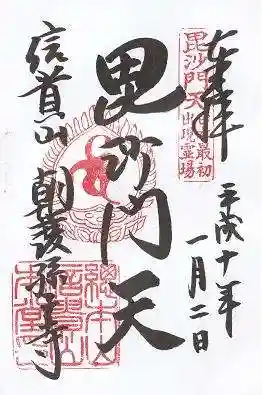 奉拝
毘沙門天出現最初霊場
平成十年
一月二日
毘沙門天
信貴山 朝護孫子寺
總本山
信貴山
本堂